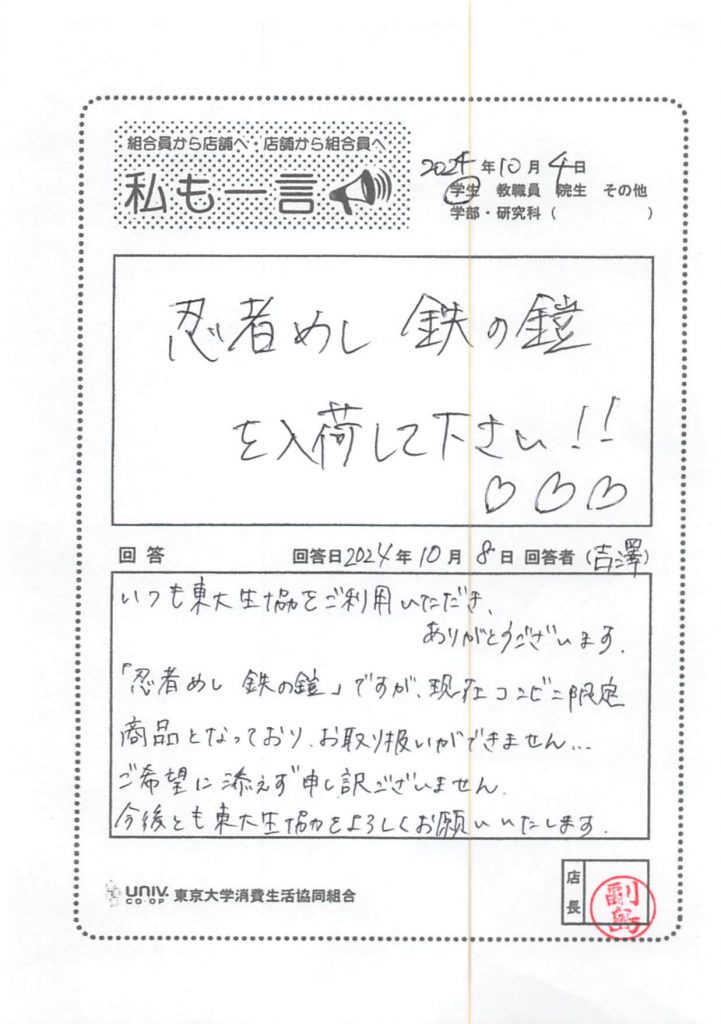 組合員から店舗へ・店舗から組合員へ
私も一言
2024年10月4日
学生 教職員 院生 その他
学部・研究科（　　　　　　）
忍者めし 鉄の鎧
を入荷して下さい!!
♡♡♡
回答 回答日2024年10月8日 回答者（吉澤）
いつも東大生協をご利用いただき、
ありがとうございます。
「忍者めし 鉄の鎧」ですが、現在コンビニ限定
商品となっており、お取り扱いができません…
ご希望に添えず申し訳ございません。
今後とも東大生協をよろしくお願いいたします。
UNIV. CO-OP 東京大学消費生活協同組合
店長
副島